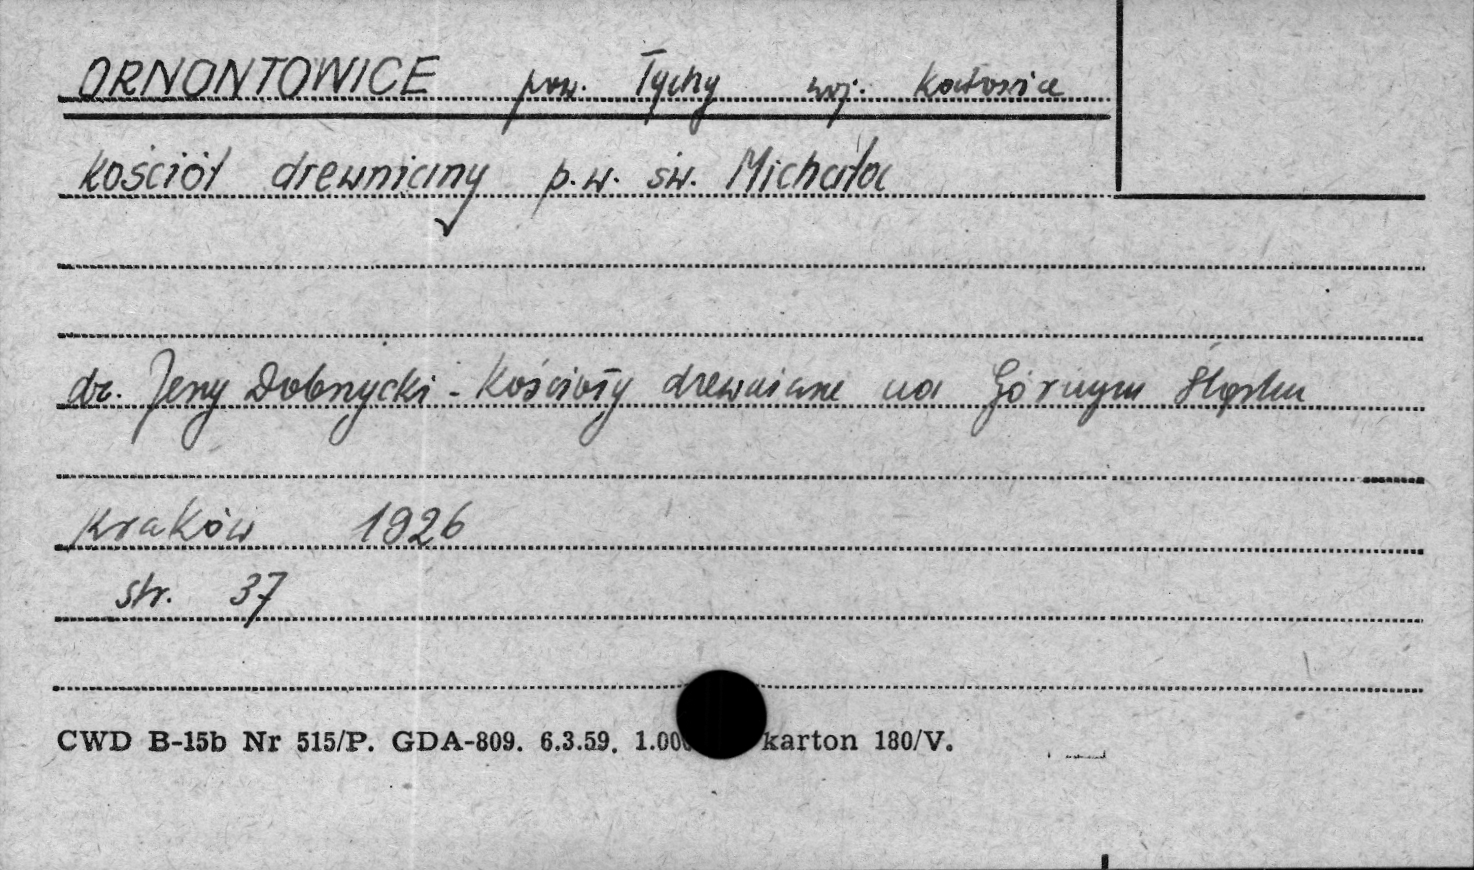 ORNONTOWICE pow. Tychy woj. Katowice
kościół drewniany p.w. św. Michała
dr. Jerzy Dobrzycki - Kościoły drewniane na Górnym Śląsku
Kraków 1926
str. 37
CWD B-15b Nr 515/P. GDA-809. 6.3.59. karton 180/V.